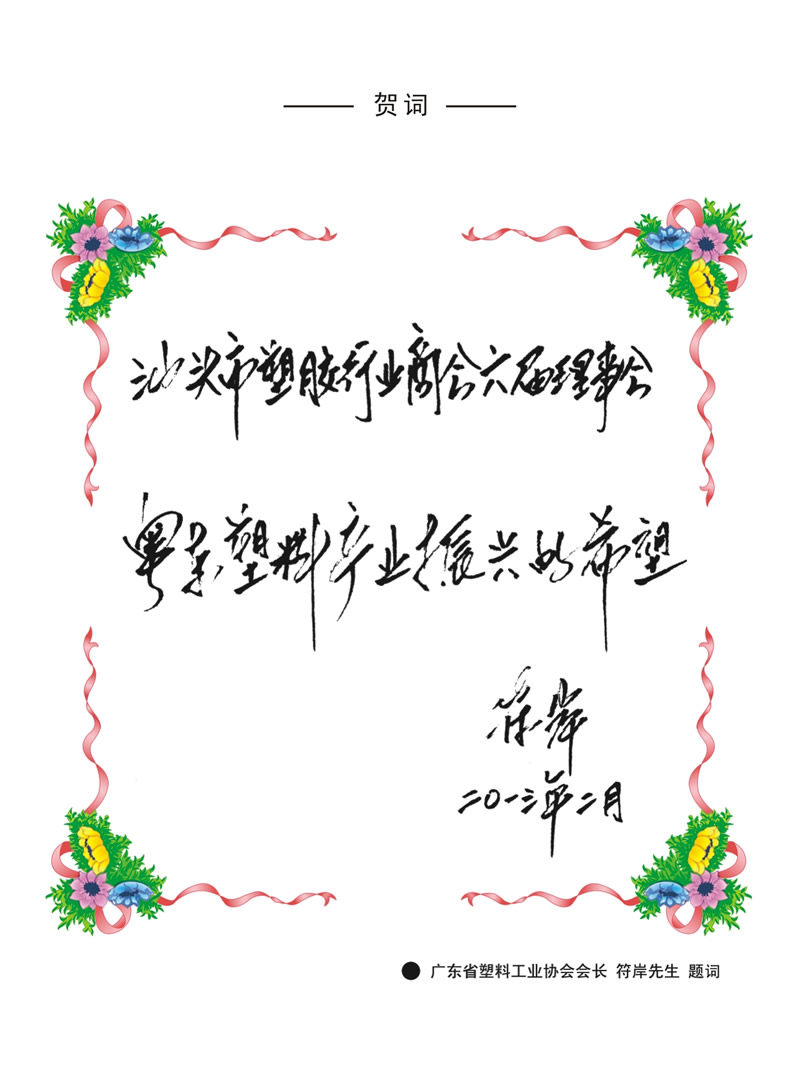 贺词
汕头市塑胶行业商会六届理事会
粤东塑料产业振兴的希望
符岸
二〇一三年二月
广东省塑料工业协会会长 符岸先生 题词